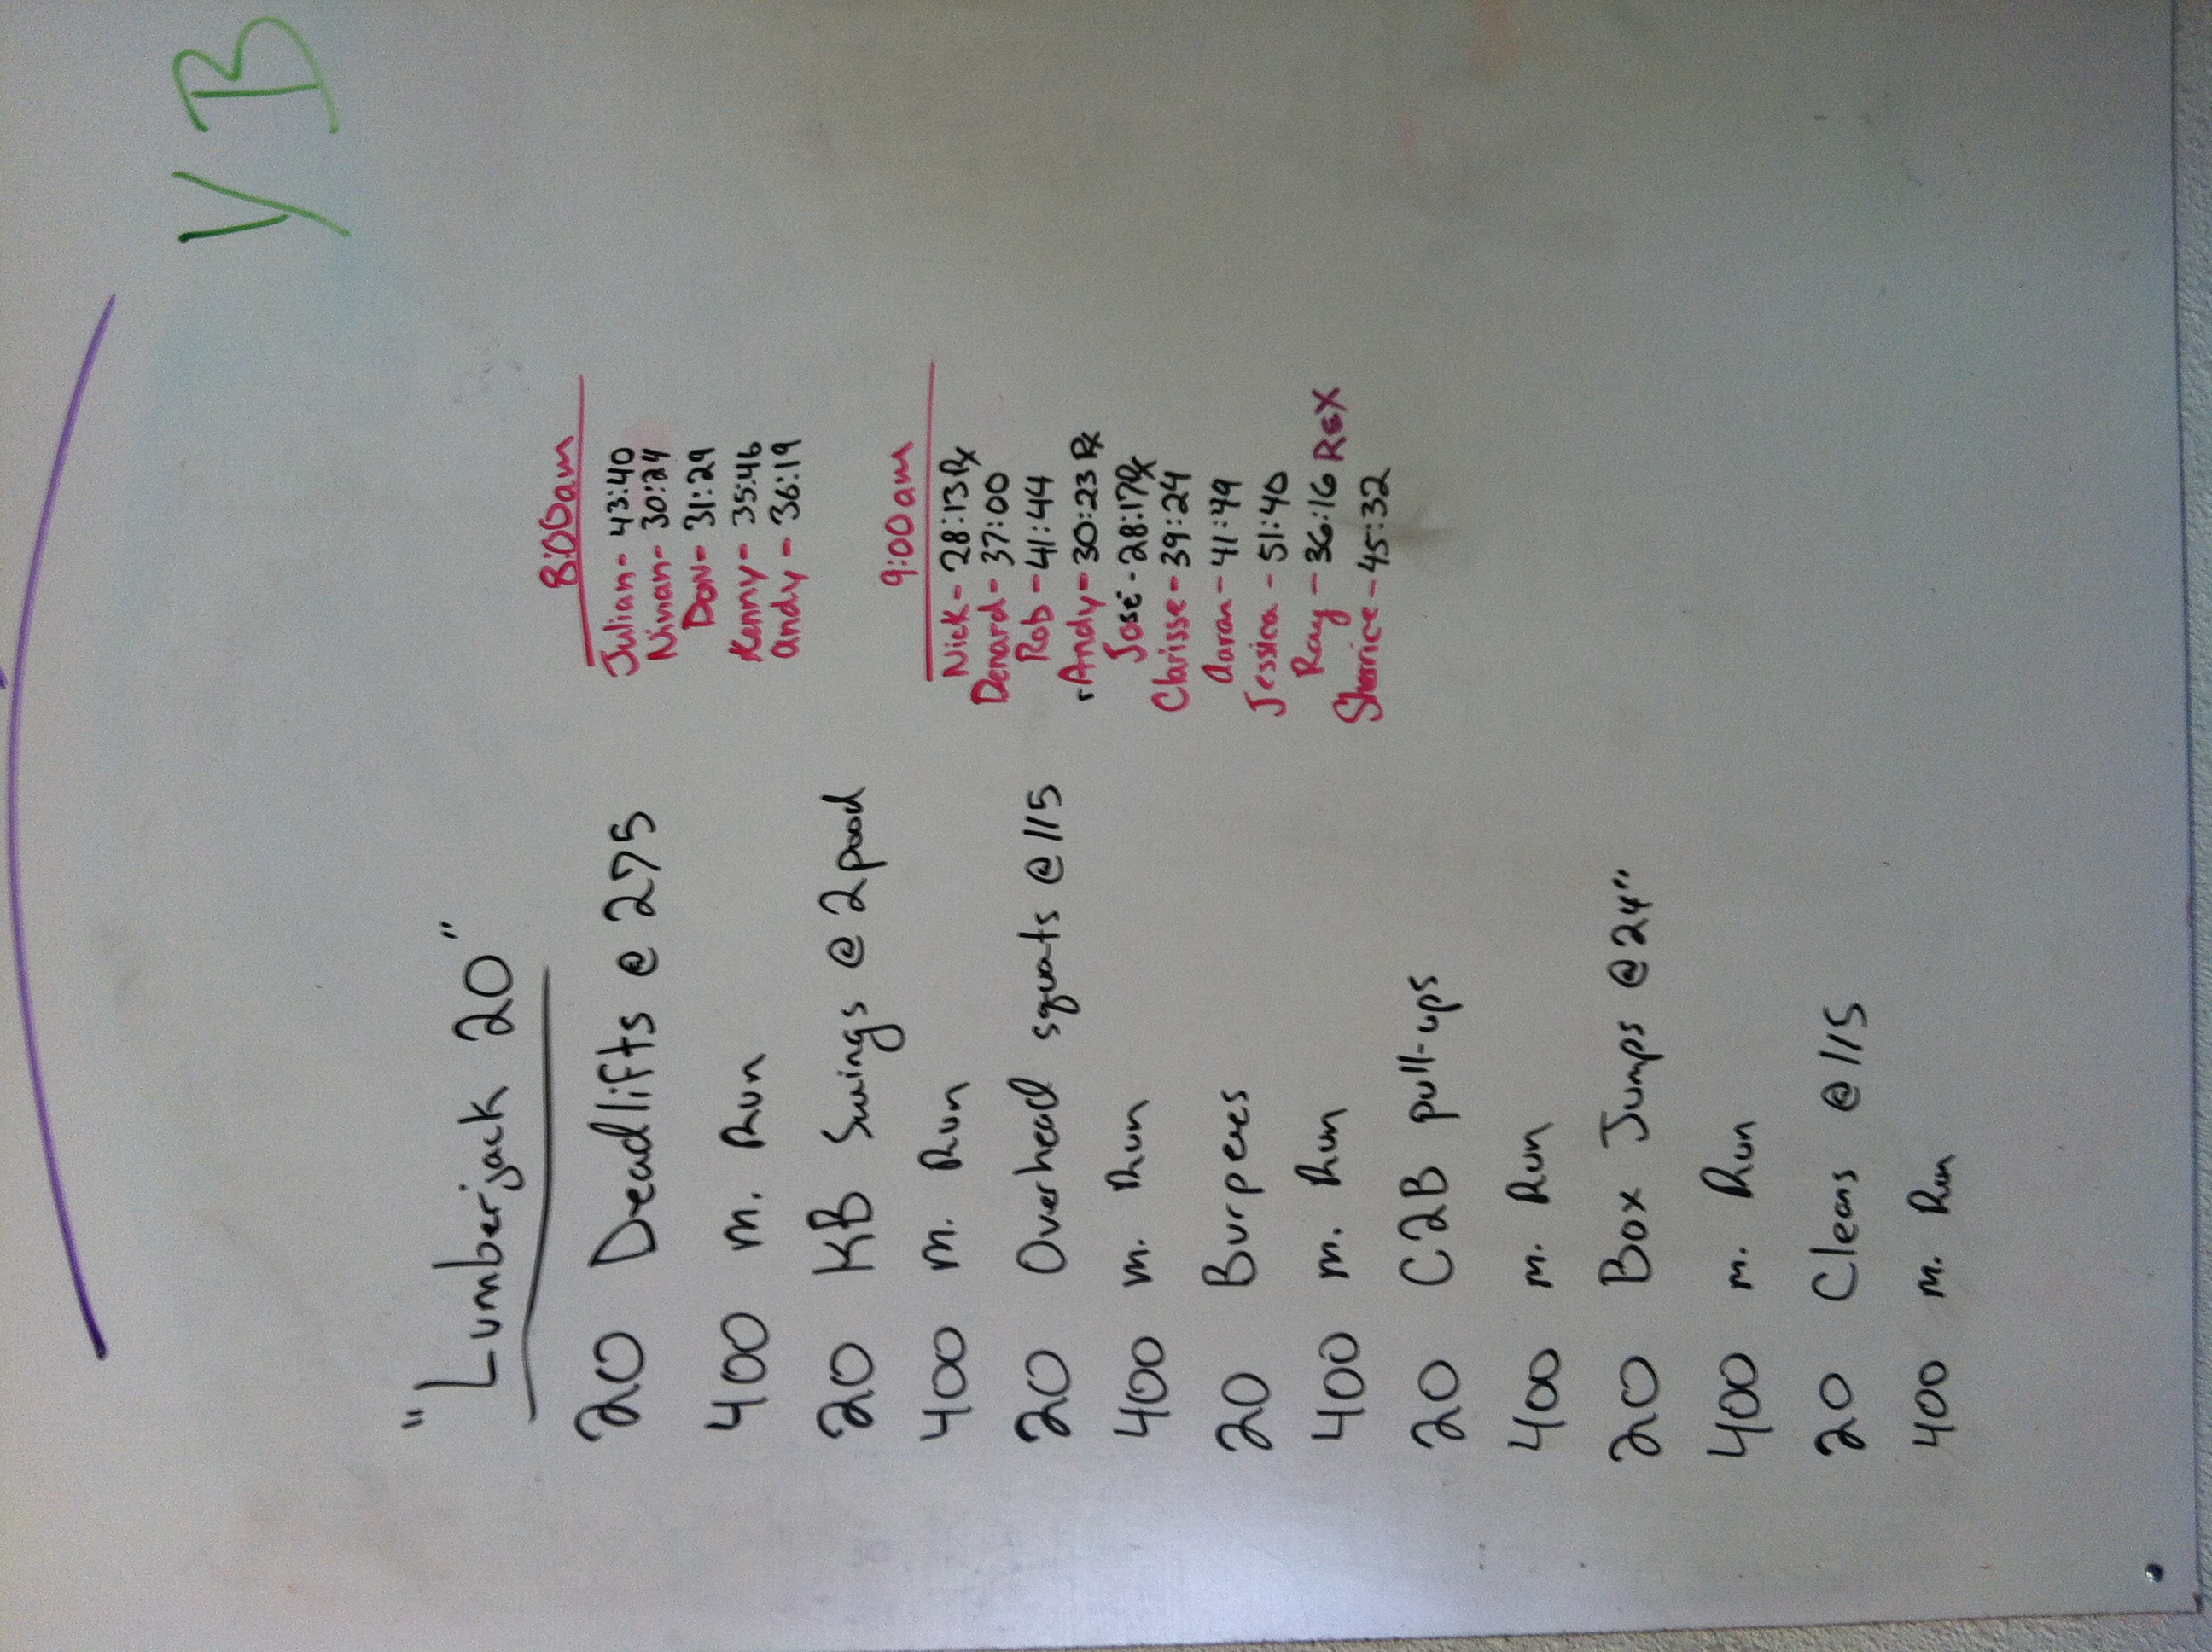 YB
"Lumberjack 20"
20 Deadlifts @ 275
400 m. Run
20 KB Swings @ 2pood
400 m. Run
20 Overhead squats @ 115
400 m. Run
20 Burpees
400 m. Run
20 C2B pull-ups
400 m. Run
20 Box Jumps @ 24"
400 m. Run
20 Cleans @ 115
400 m. Run
8:00am
Julian - 43:40
Nivian - 30:24
Don - 31:29
Kenny - 35:46
Andy - 36:19
9:00am
Nick - 28:13 Rx
Denard - 37:00
Rob - 41:44
Andy - 30:23 Rx
José - 28:17 Rx
Clarisse - 39:24
Aaran - 41:49
Jessica - 51:40
Ray - 36:16 RSX
45:32